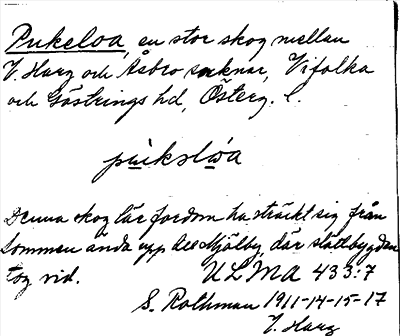 Pukeloa, en stor skog mellan
V. Harg och Åsbo socknar, Vifolka
och Göstrings hd, Österg. l.
pu̱ksloa
Denna skog lär fordom ha sträckt sig från
Sommen ända upp till Mjölby, där slättbygden
tog vid. ULMA 433:7
S. Rothman 1911-14-15-17
V. Harg